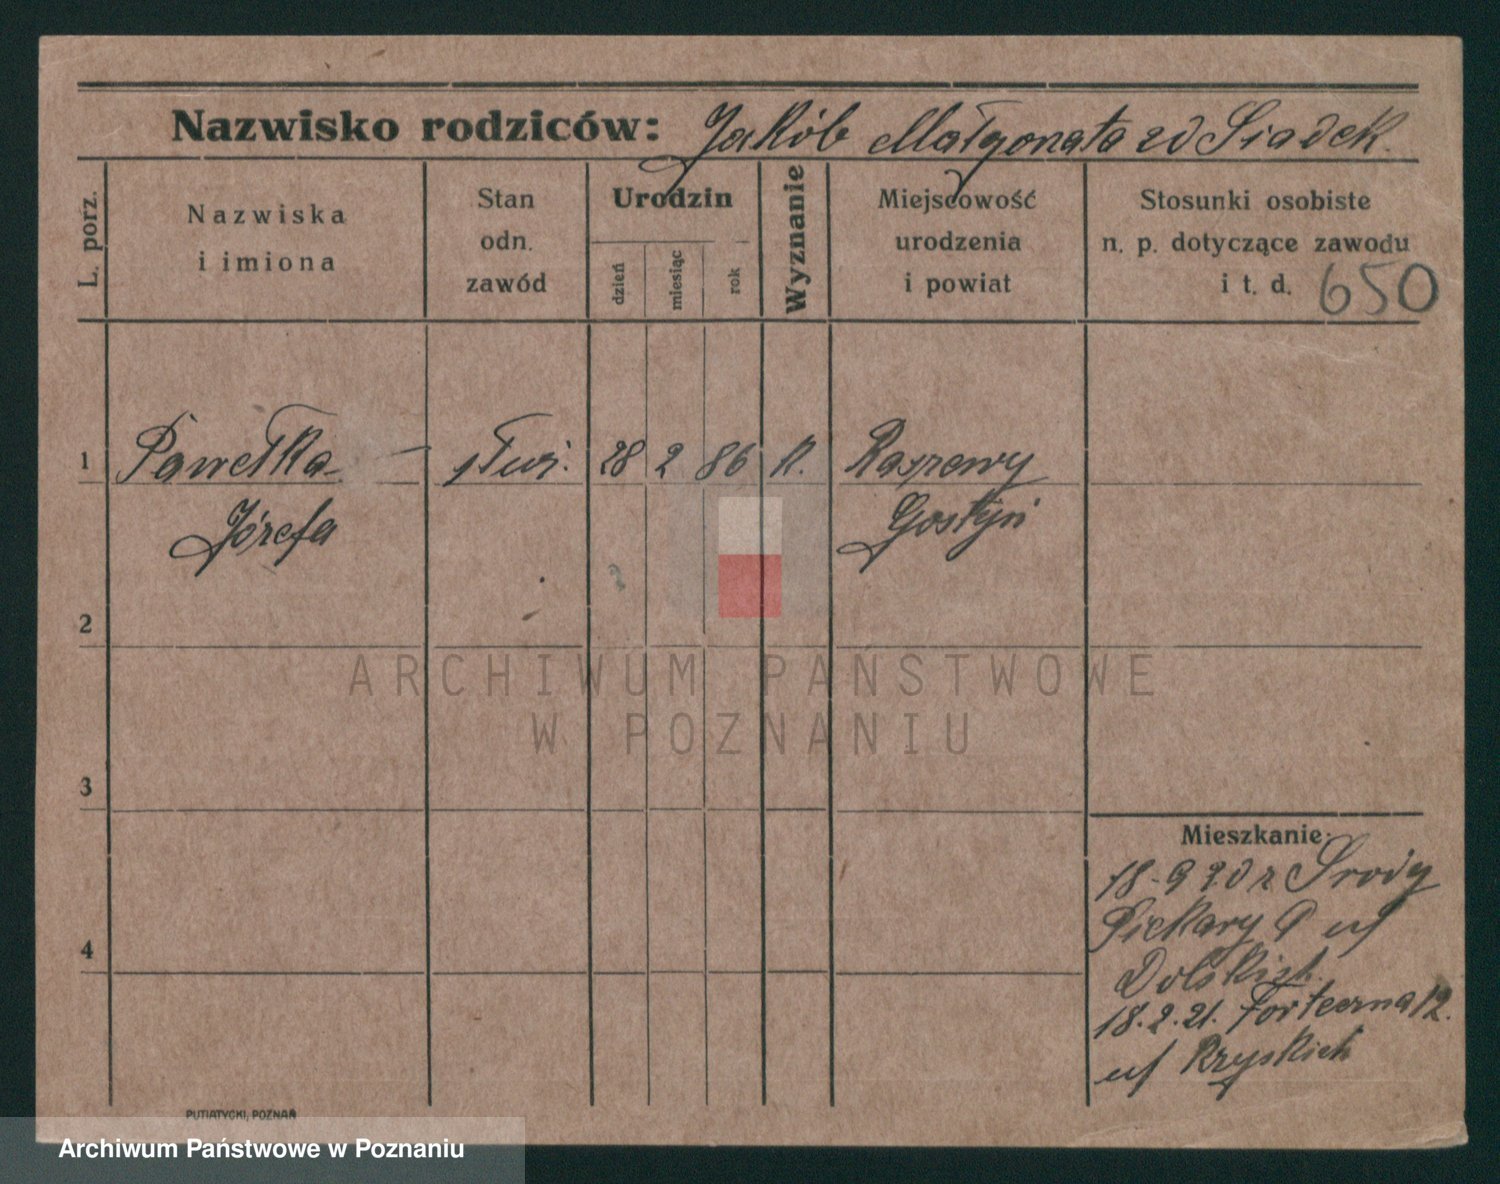 Nazwisko rodziców: Jakób Małgorzata zd Siadek.
L. porz.
Nazwiska
i imiona
Stan
odn.
zawód
Urodzin
dzień
miesiąc
rok
Wyznanie
Miejscowość
urodzenia
i powiat
Stosunki osobiste
n. p. dotyczące zawodu
i t. d. 650
1 Pawełka służ. 28 2 86 K. Raszewy
Józefa Gostyń
2
3
4
Mieszkanie:
18.9 20 z Środy
Piekary 9 u/
Dolskich.
18.2.21. Forteczna 12.
u/ Rzyskich
PUTIATYCKI, POZNAŃ
ARCHIWUM PAŃSTWOWE
W POZNANIU
Archiwum Państwowe w Poznaniu